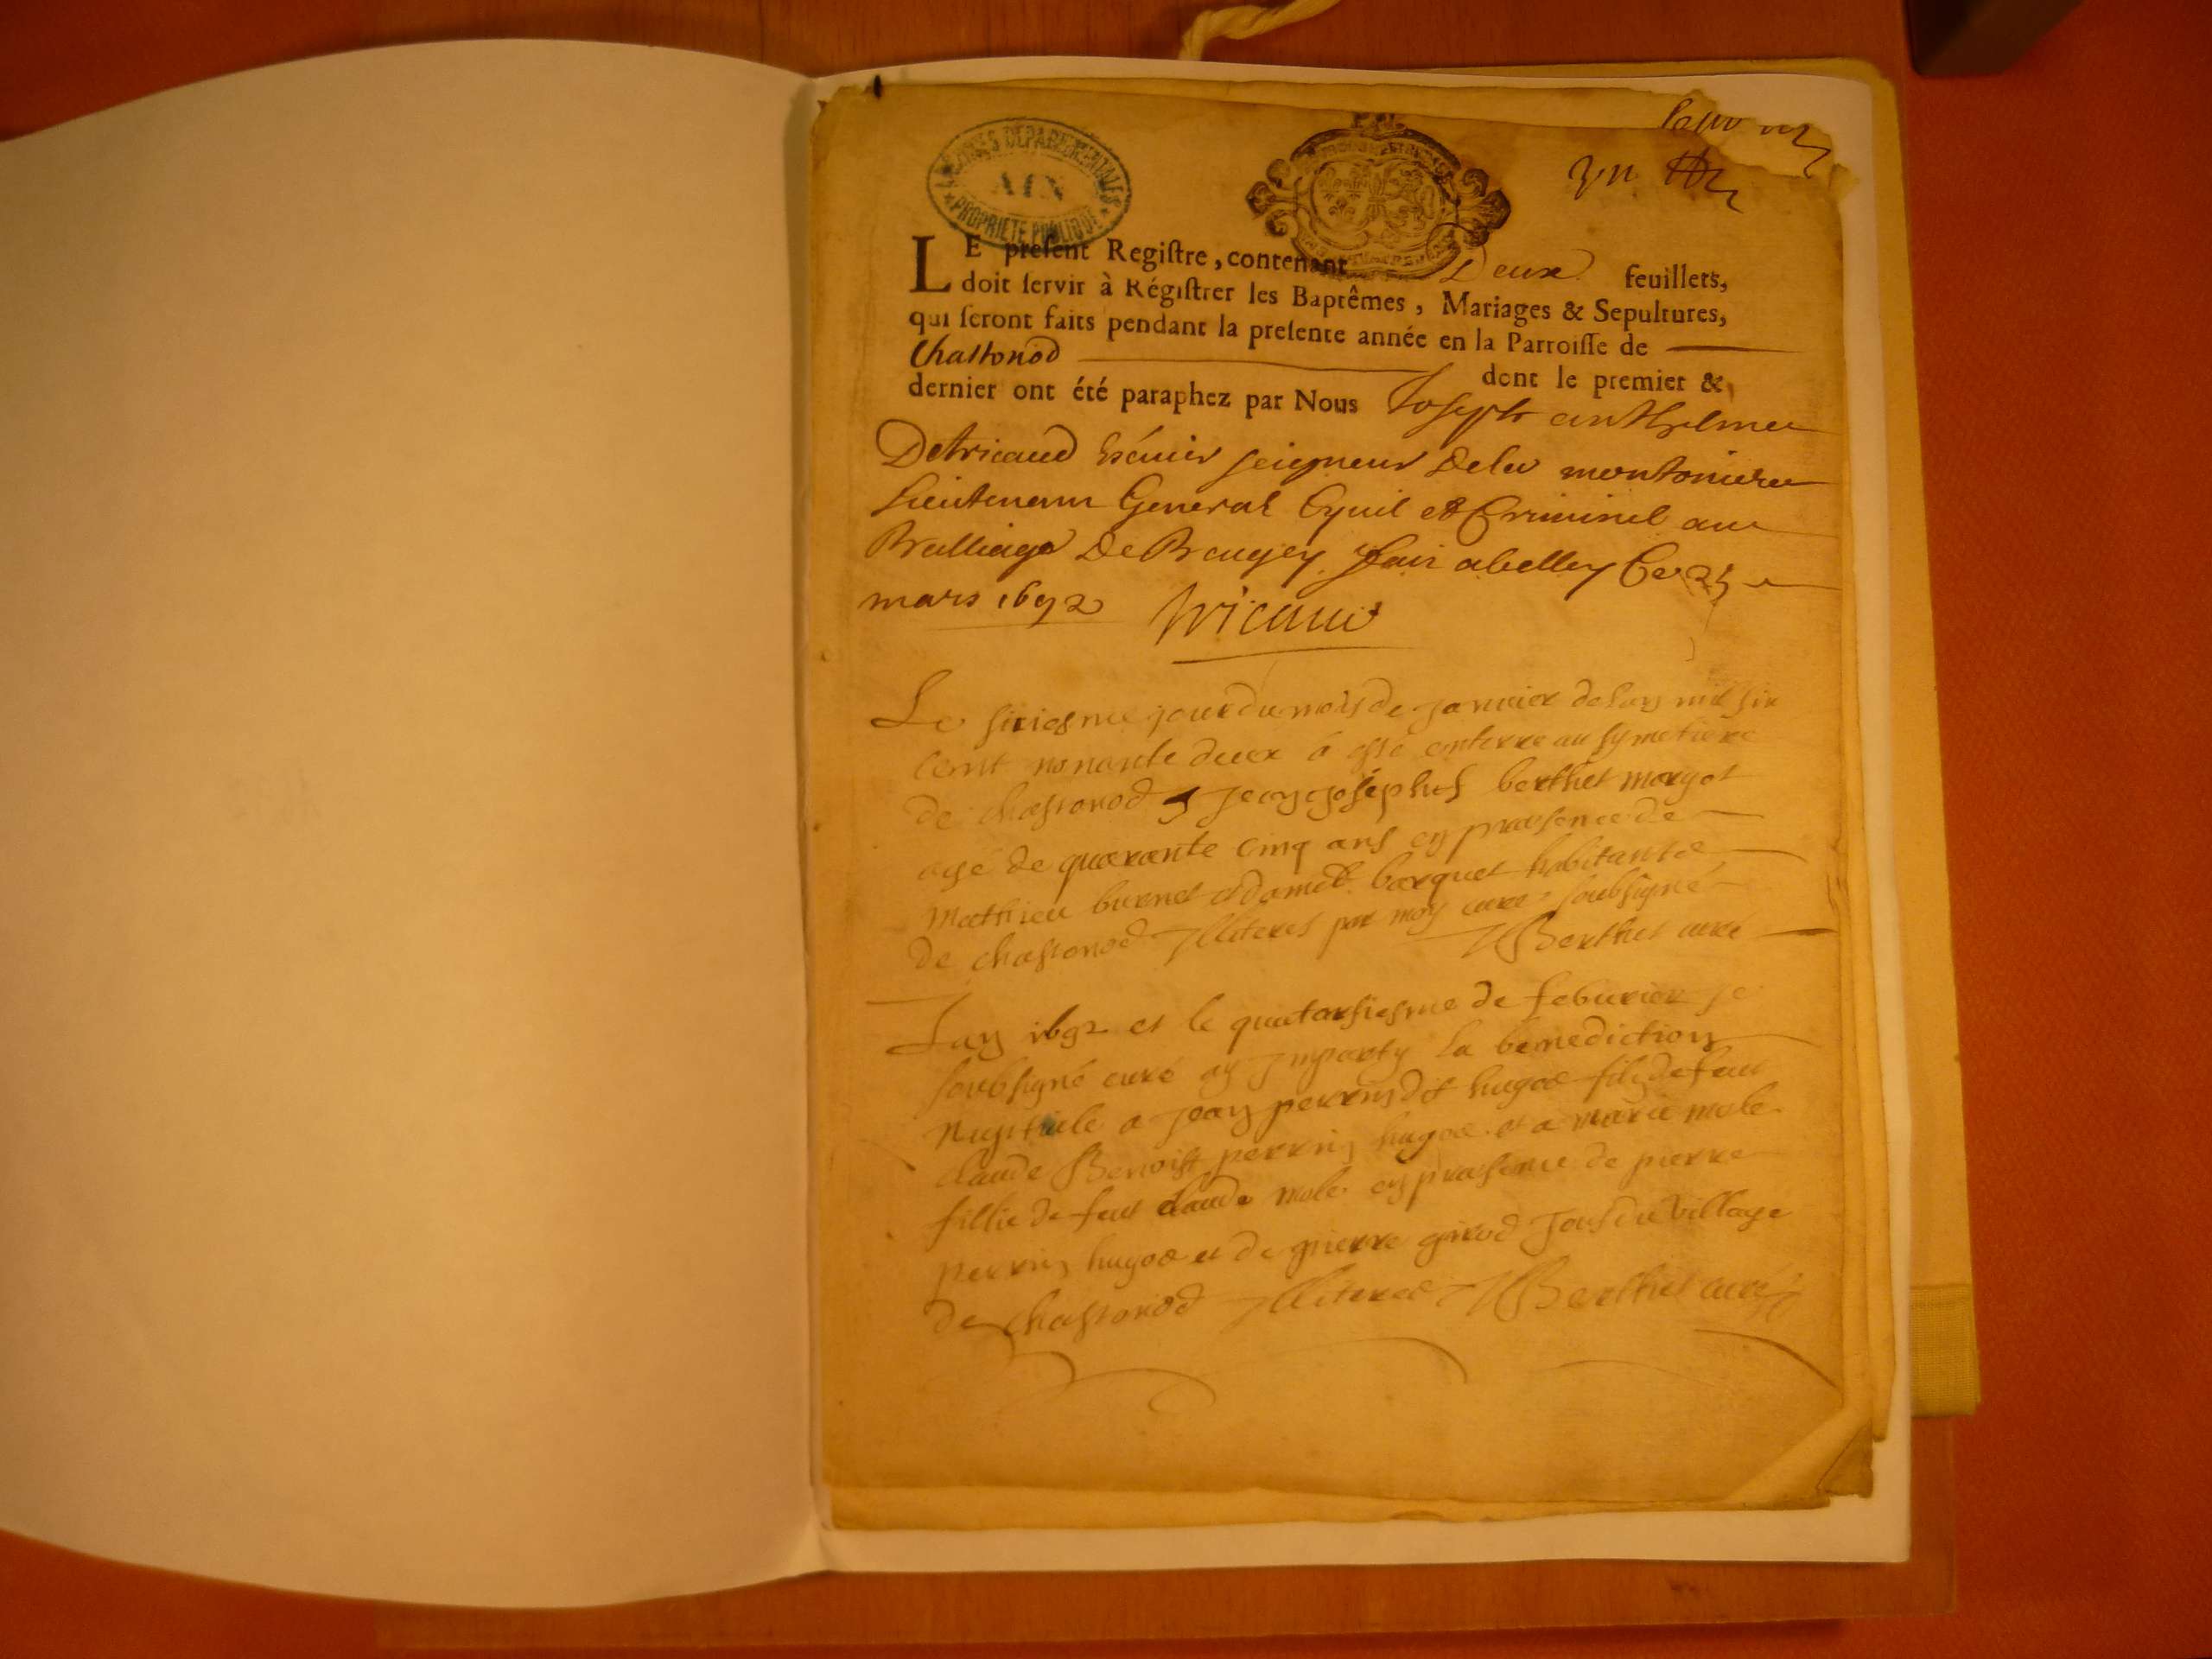 ARCHIVES DEPARTEMENTALES
AIN
PROPRIETE PUBLIQUE
LE present Registre, contenant Deux feuillets,
doit servir à Régistrer les Baptêmes, Mariages & Sepultures,
qui seront faits pendant la presente année en la Parroisse de
Chastonod dont le premier &
dernier ont été paraphez par Nous Joseph anthelme
Detricaud Escuier seigneur Dela montoniere
Lieutenant General Cyuil et Criminel au
Bailliage De Beugey fait abelley Ce 25
mars 1692 Tricaud
Le siziesme jour du mois de Janvier de lan mil six
cent nonante deux a esté enterre au symetiere
de chastonod Jean josephus berthet margot
agé de quarante cinq ans en praesence de
Mathieu burnet et barquet habitants
de chastonod Illiteres par moy curé soubsigné
Berthet curé
Lan 1692 et le quatorsiesme de feburier je
soubsigné curé ay Imparty la benediction
Nuptiale a Jean perrin dit hugoz filz de feu
claude Benoist perrin hugoz et a marie mole
fillie de feu claude mole en praesence de pierre
perrin hugoz et de pierre girod Tous du village
de chastonod Illiteres Berthet curé